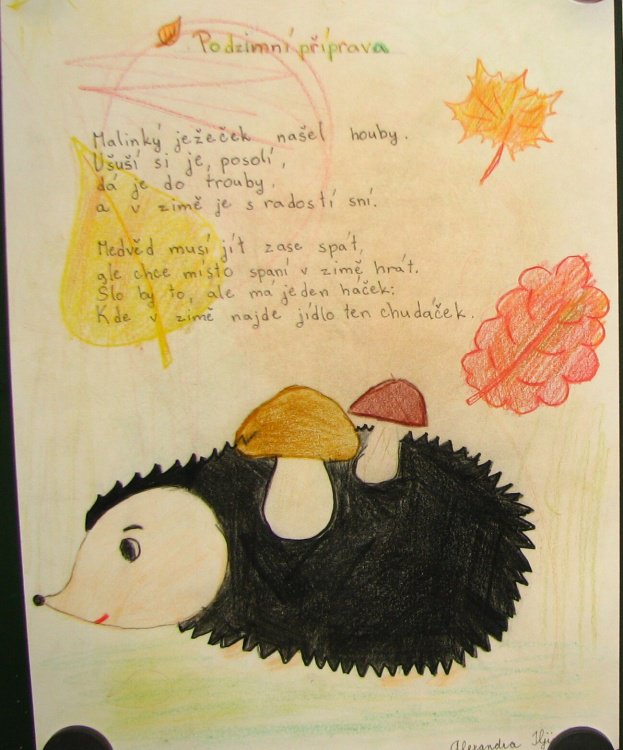 Podzimní příprava
Malinký ježeček našel houby.
Usuší si je, posolí,
dá je do trouby.
a v zimě je s radostí sní.
Medvěd musí jít zase spát,
ale chce místo spaní v zimě hrát.
Šlo by to, ale má jeden háček:
Kde v zimě najde jídlo ten chudáček.
Alexandra